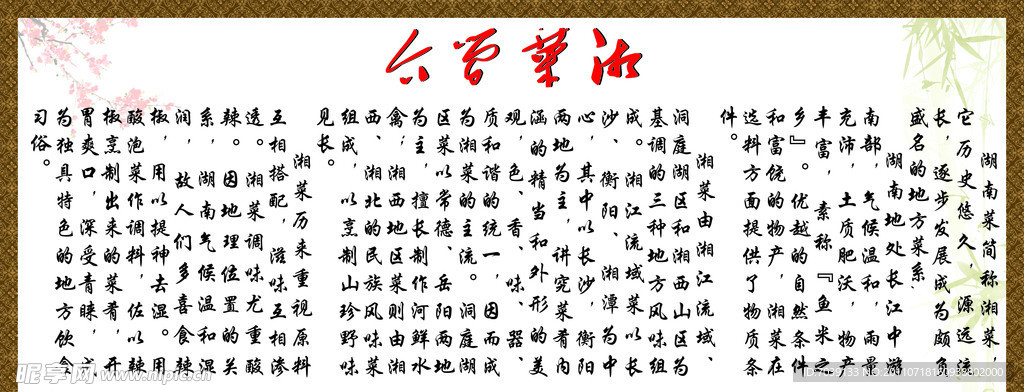 湘菜简介
湖南菜简称湘菜,
它历史悠久,源远流
长,逐步发展成为颇负
盛名的地方菜系。
湖南地处长江中游
南部,气候温和,雨量
充沛,土质肥沃,物产
丰富,素称『鱼米之
乡』。优越的自然条件
和富饶的物产,湘菜在
选料方面提供了物质条
件。
湘菜由湘江流域、
洞庭湖区和湘西山区为
基调的三种地方风味组
成。湘江流域菜以长
沙、衡阳、湘潭为中
心,其中以长沙,衡阳
两地为主,讲究菜肴内
涵的精当和外形的美
观,色、香、味、器、
质和谐的统一,因而成
为湘菜的主流。洞庭湖
区菜以常德、岳阳
为主,擅长制作河鲜水
禽,湘西地区菜则由湘
西、湘北的民族风味菜
组成,以烹制山珍野味
见长。
湘菜历来重视原料
互相搭配,滋味互相渗
透。湘菜调味尤重酸
辣。因地理位置的关
系,湖南气候温和湿
润,故人们多喜食辣
椒,用以提神去湿。用
酸泡菜作调料,佐以辣
椒烹制出来的菜肴,开
胃爽口,深受青睐,成
为独具特色的地方饮食
习俗。
昵享网